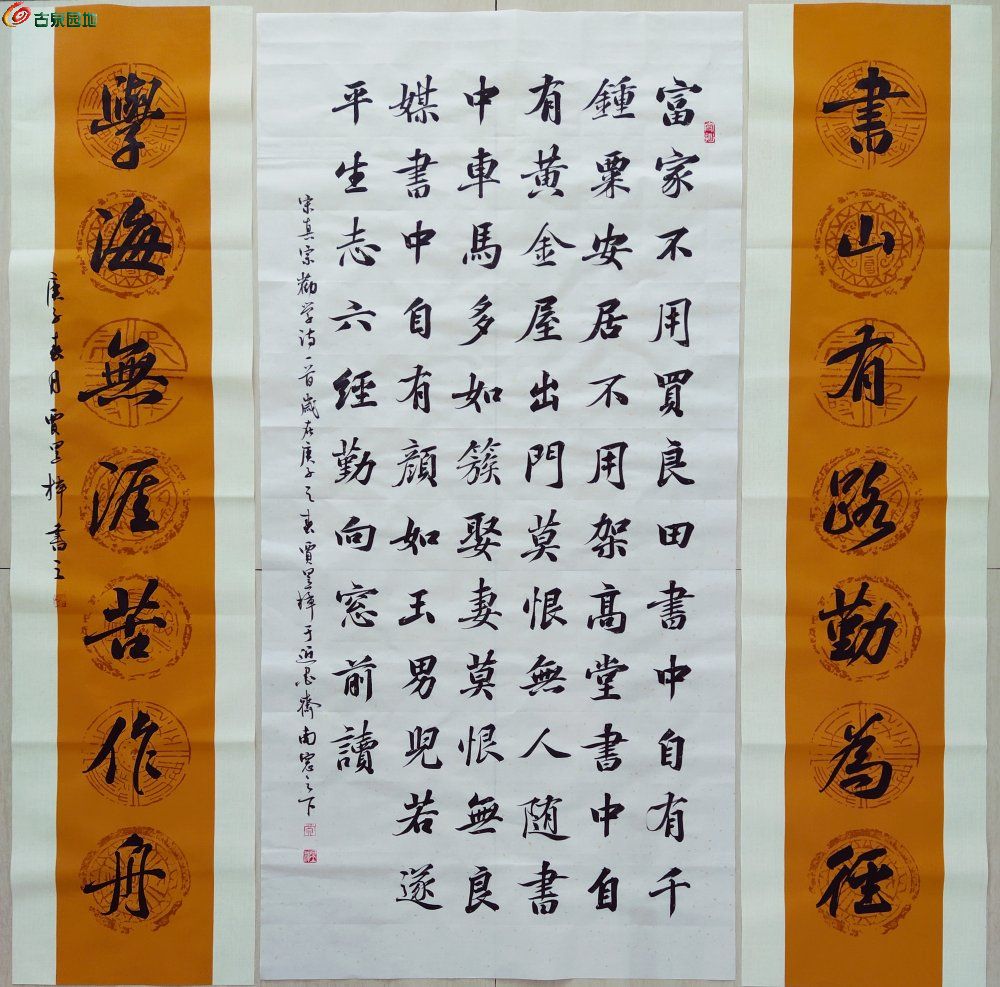 古泉园地
書山有路勤為徑
富家不用買良田書中自有千
鍾粟安居不用架高堂書中自
有黃金屋出門莫恨無人随書
中車馬多如簇娶妻莫恨無良
媒書中自有顔如玉男児若遂
平生志六經勤向窓前讀
宋真宗勸学诗一首歲在庚子之春賈于斋南窓之下
學海無涯苦作舟
庚子春月賈書之